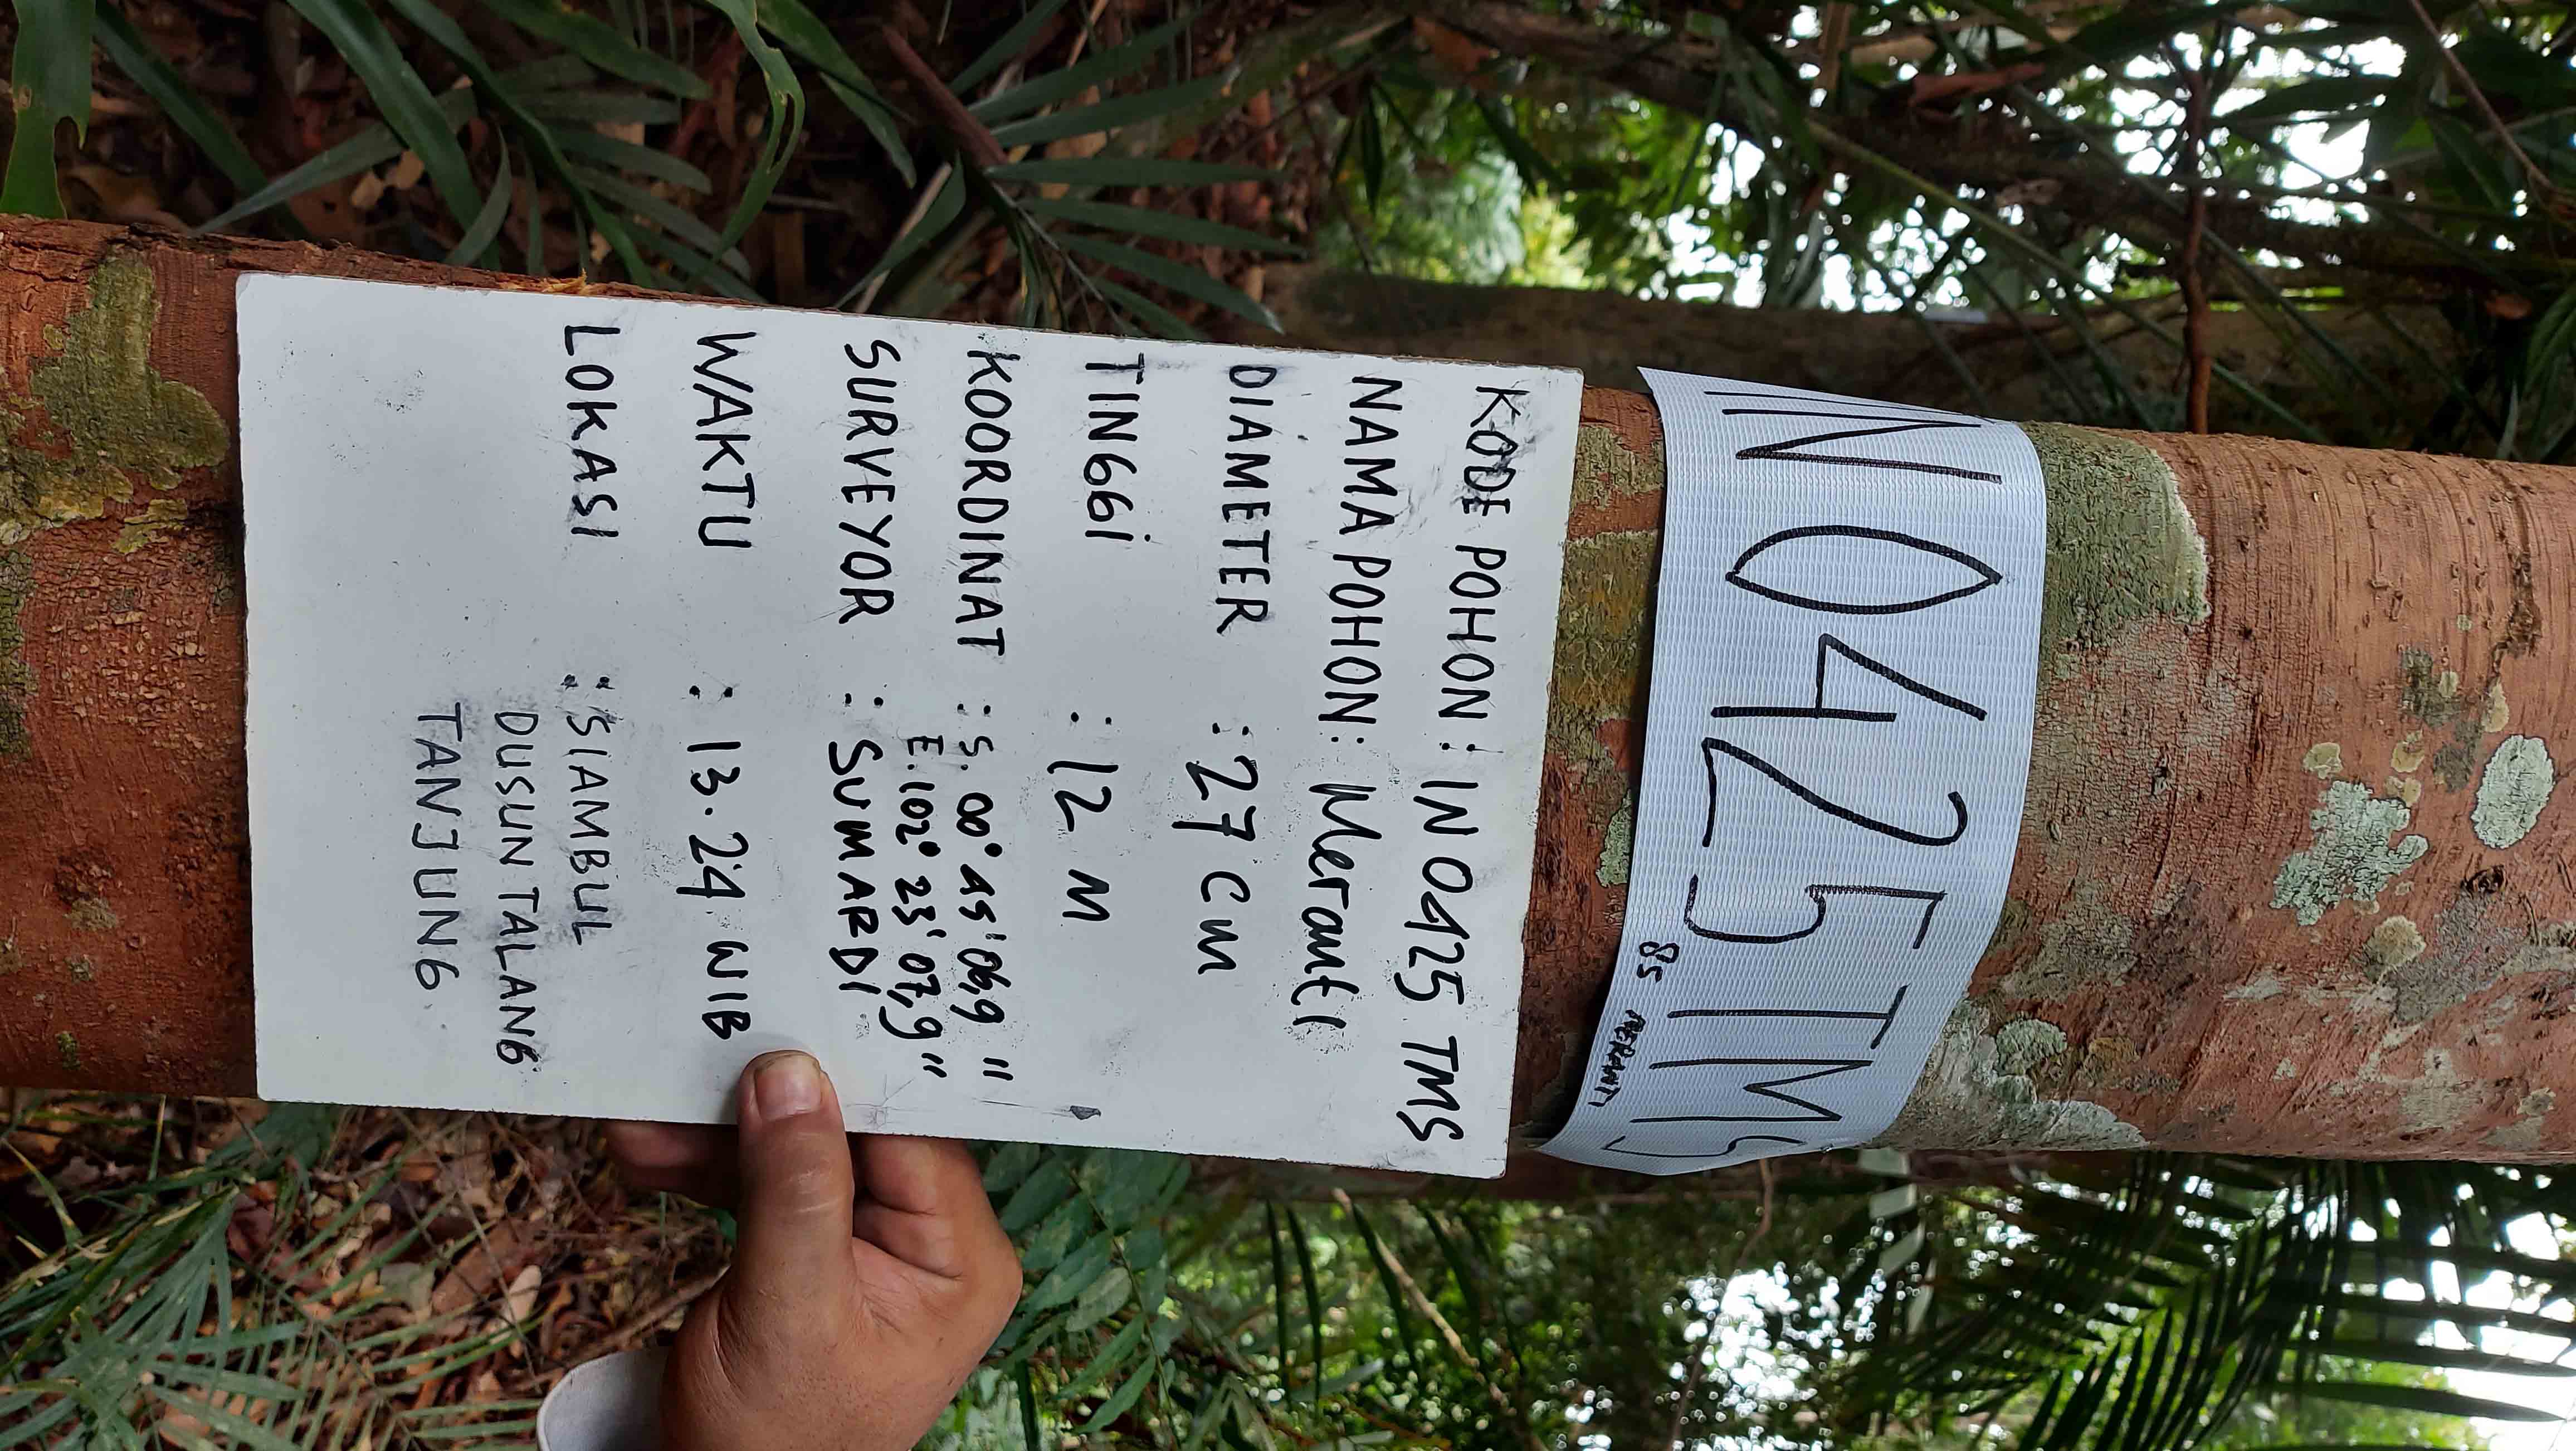 IN 0425 TMS
85 MERANTI
KODE POHON : IN 0425 TMS
NAMA POHON : Meranti
DIAMETER : 27 cm
TINGGI : 12 M
KOORDINAT : S. 00° 45' 06,9 "
E. 102° 23' 07,9 "
SURVEYOR : SUMARDI
WAKTU : 13.24 WIB
LOKASI : SIAMBUL
DUSUN TALANG
TANJUNG